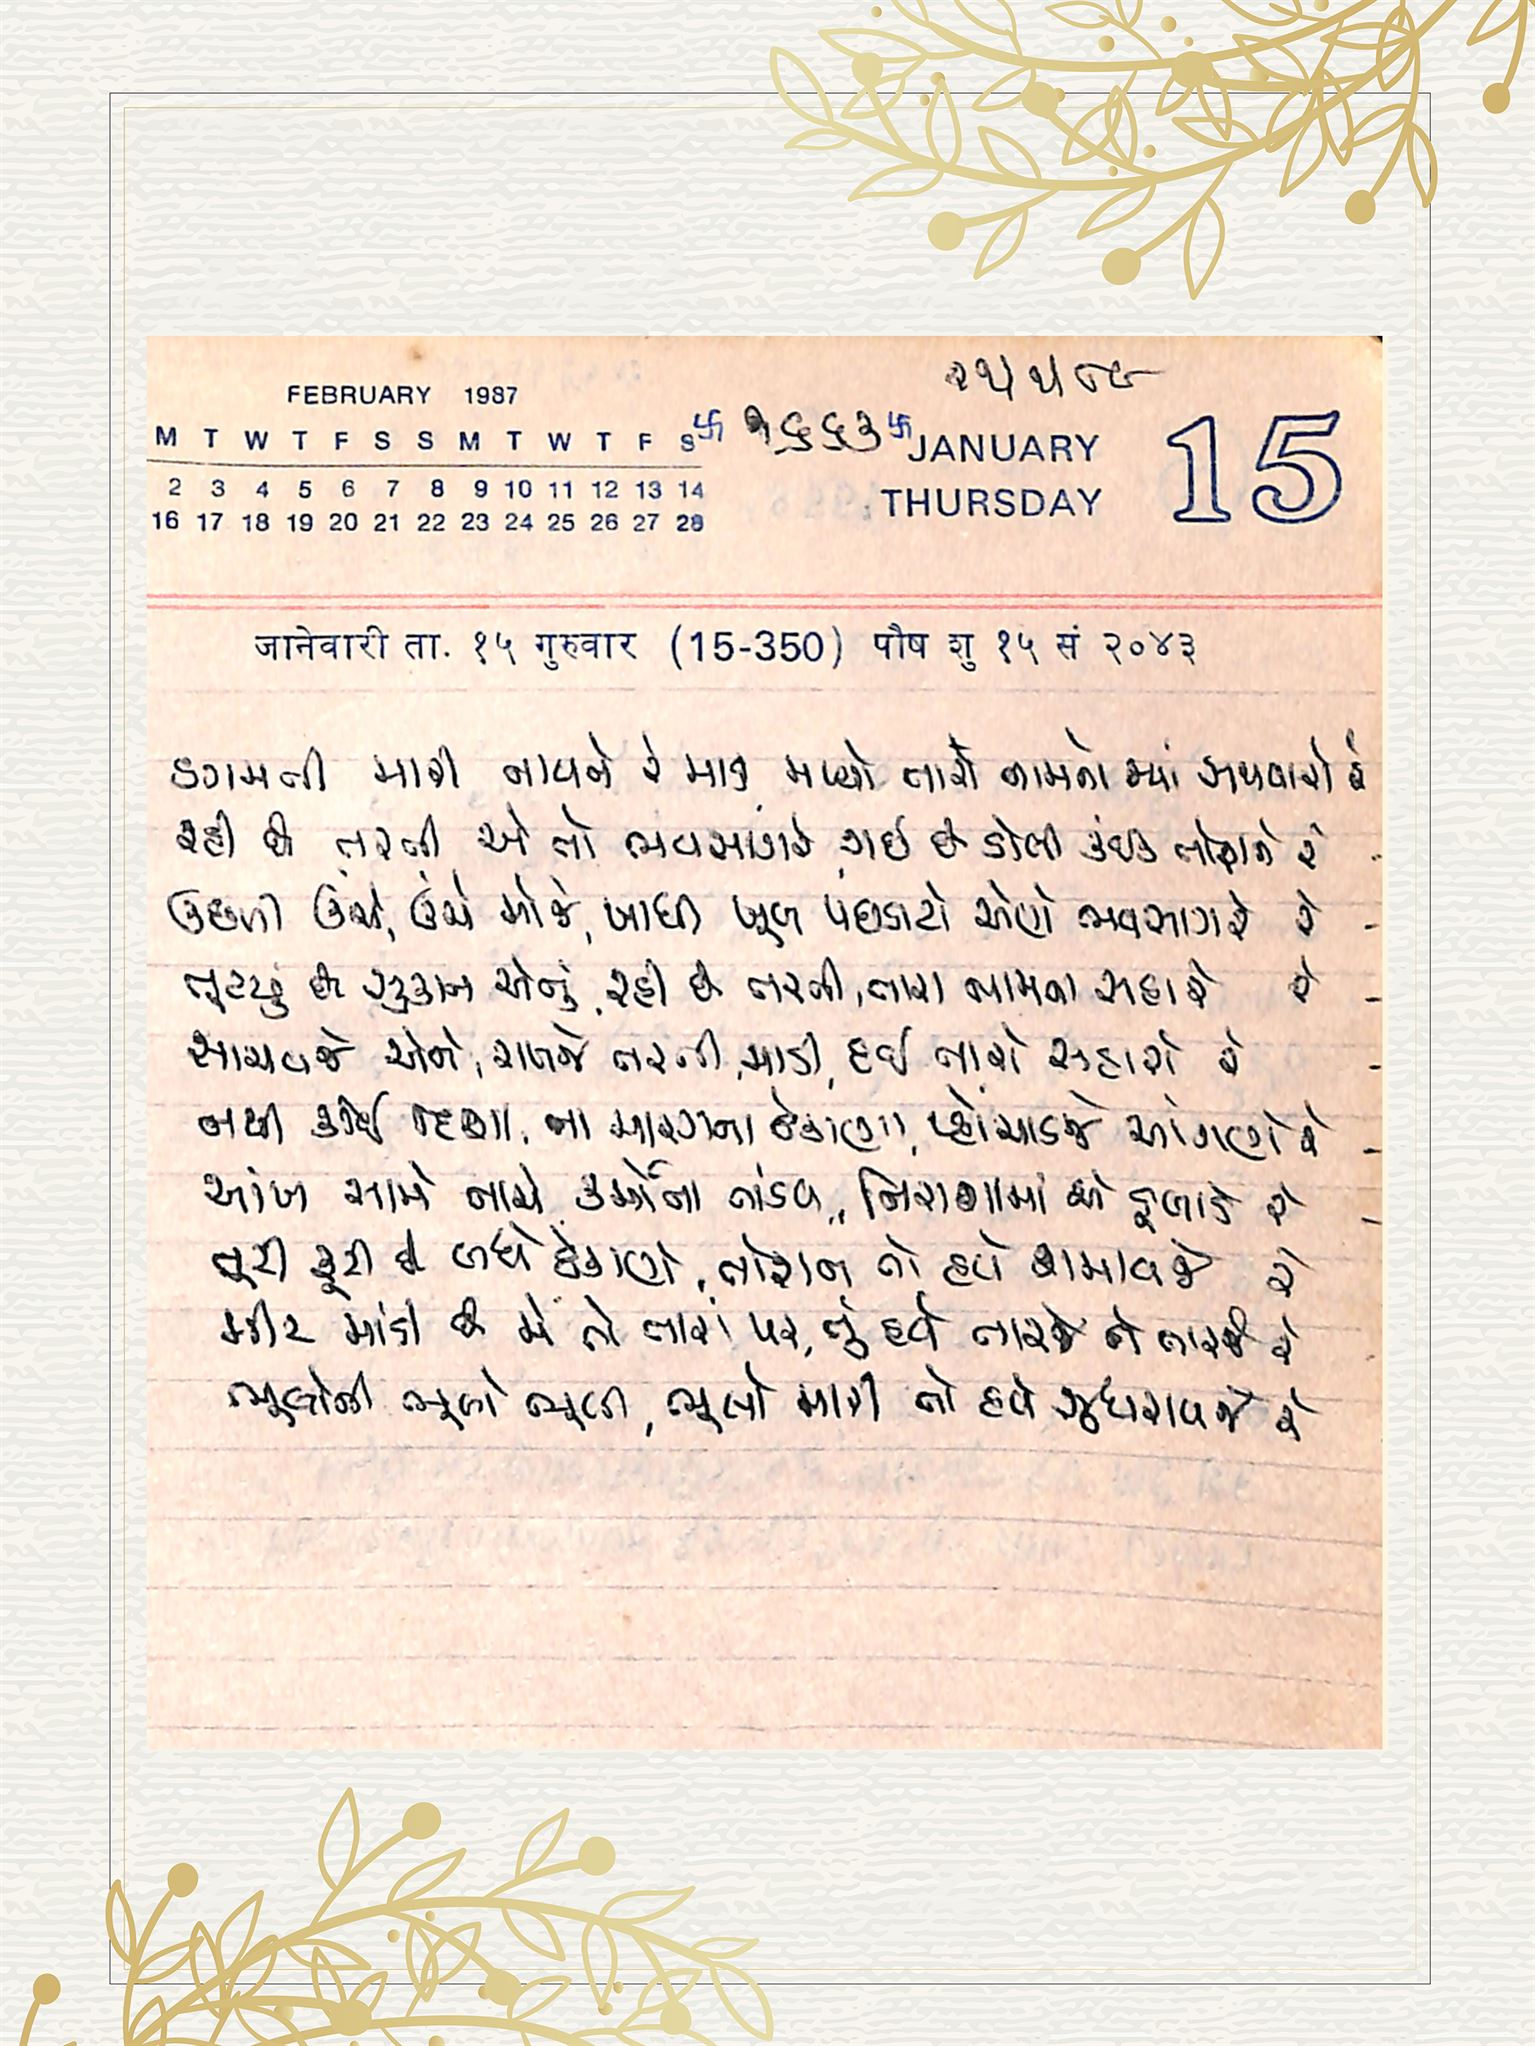 ૨૫૫૮૯
FEBRUARY 1987
M T W T F S S M T W T F S
2 3 4 5 6 7 8 9 10 11 12 13 14
16 17 18 19 20 21 22 23 24 25 26 27 28
卐 ૧૬૬૩ 卐
JANUARY
THURSDAY
15
जानेवारी ता. १५ गुरुवार (15-350) पौष शु १५ सं २०४३
ડગમતી મારી નાવને રે માડી મળ્યો તારો નામનો જ્યાં સથવારો રે
રહી છે તરતી એ તો ભવસાગરે ગઈ છે ડોલી કંઈક તોફાને રે -
ઉછળી ઉંચે, ઉંચે મોજે, ખાધી ખૂબ પછડાટો એણે ભવસાગરે રે -
તૂટયું છે સુકાન એનું, રહી છે તરતી, તારા નામના સહારે રે -
સાચવજે એને, રાખજે તરતી, માડી, દઈ તારો સહારો રે -
નથી કોઈ દિશા, ના મારગના ઠેકાણા, પ્હોંચાડજે આંગણે રે -
આંખ સામે નાચે કર્મોના તાંડવ, નિરાશામાં એ ડૂબાડે રે -
તૂટી ફૂટી છે બધે ઠેકાણે, તોફાન તો હવે શમાવજે રે
મીટ માંડી છે મેં તો તારા પર, તું હવે તારજે ને તારજે રે
ભૂલોની ભૂલો ભૂલી, ભૂલો મારી તો હવે સુધરાવજે રે